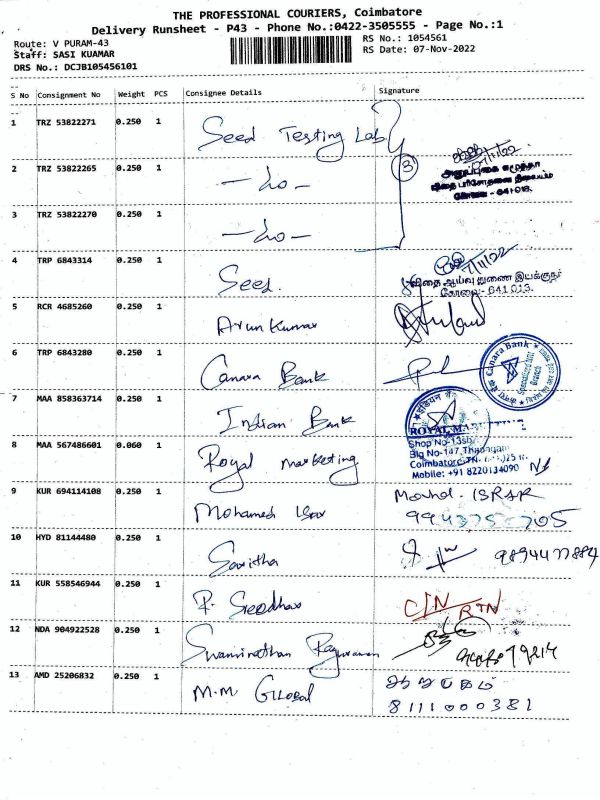 THE PROFESSIONAL COURIERS, Coimbatore
Delivery Runsheet - P43 - Phone No.:0422-3505555 - Page No.:1
Route: V PURAM-43
RS No.: 1054561
Staff: SASI KUAMAR
RS Date: 07-Nov-2022
DRS No.: DCJB105456101
S No Consignment No Weight PCS Consignee Details Signature
1 TRZ 53822271 0.250 1 Seed Testing Lab
2 TRZ 53822265 0.250 1 - do - 3
7/11/22
விதை பரிசோதனை நிலையம்
கோவை - 641013.
3 TRZ 53822270 0.250 1 - do -
4 TRP 6843314 0.250 1 Seed. 7/11/22
விதை ஆய்வு துணை இயக்குநர்
கோவை - 641 013.
5 RCR 4685260 0.250 1 Arun Kumar
6 TRP 6843280 0.250 1 Canara Bank
Canara Bank
Branch
7 MAA 858363714 0.250 1 Indian Bank
8 MAA 567486601 0.060 1 Royal Marketing
ROYAL MA
Shop No-13sb
Blg No-147, Thadagam
Coimbatore
Mobile: +91 8220134090
9 KUR 694114108 0.250 1 Mohamed Israr Mohd. ISRAR
10 HYD 81144480 0.250 1 Savitha
11 KUR 558546944 0.250 1 R. Sreedhar C/N RTN
12 NDA 904922528 0.250 1 Swaminathan
13 AMD 25206832 0.250 1 M.M Global ஆறுமுகம்
8111000381